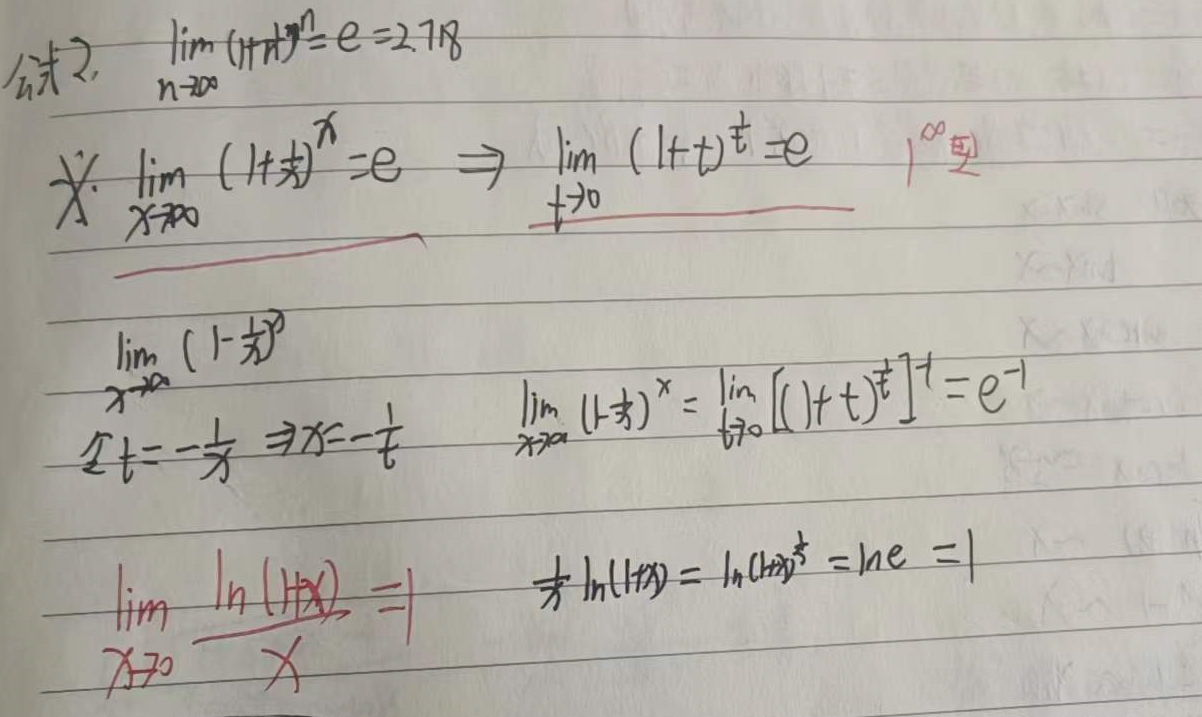 公式2. lim n→∞ (1+1/n)^n = e = 2.718
※. lim x→∞ (1+1/x)^x = e ⇒ lim t→0 (1+t)^(1/t) = e 1^∞型
lim x→∞ (1-1/x)^x
令t = -1/x ⇒ x = -1/t lim x→∞ (1-1/x)^x = lim t→0 [(1+t)^(1/t)]^-1 = e^-1
lim x→0 ln(1+x)/x = 1 1/x ln(1+x) = ln(1+x)^(1/x) = lne = 1